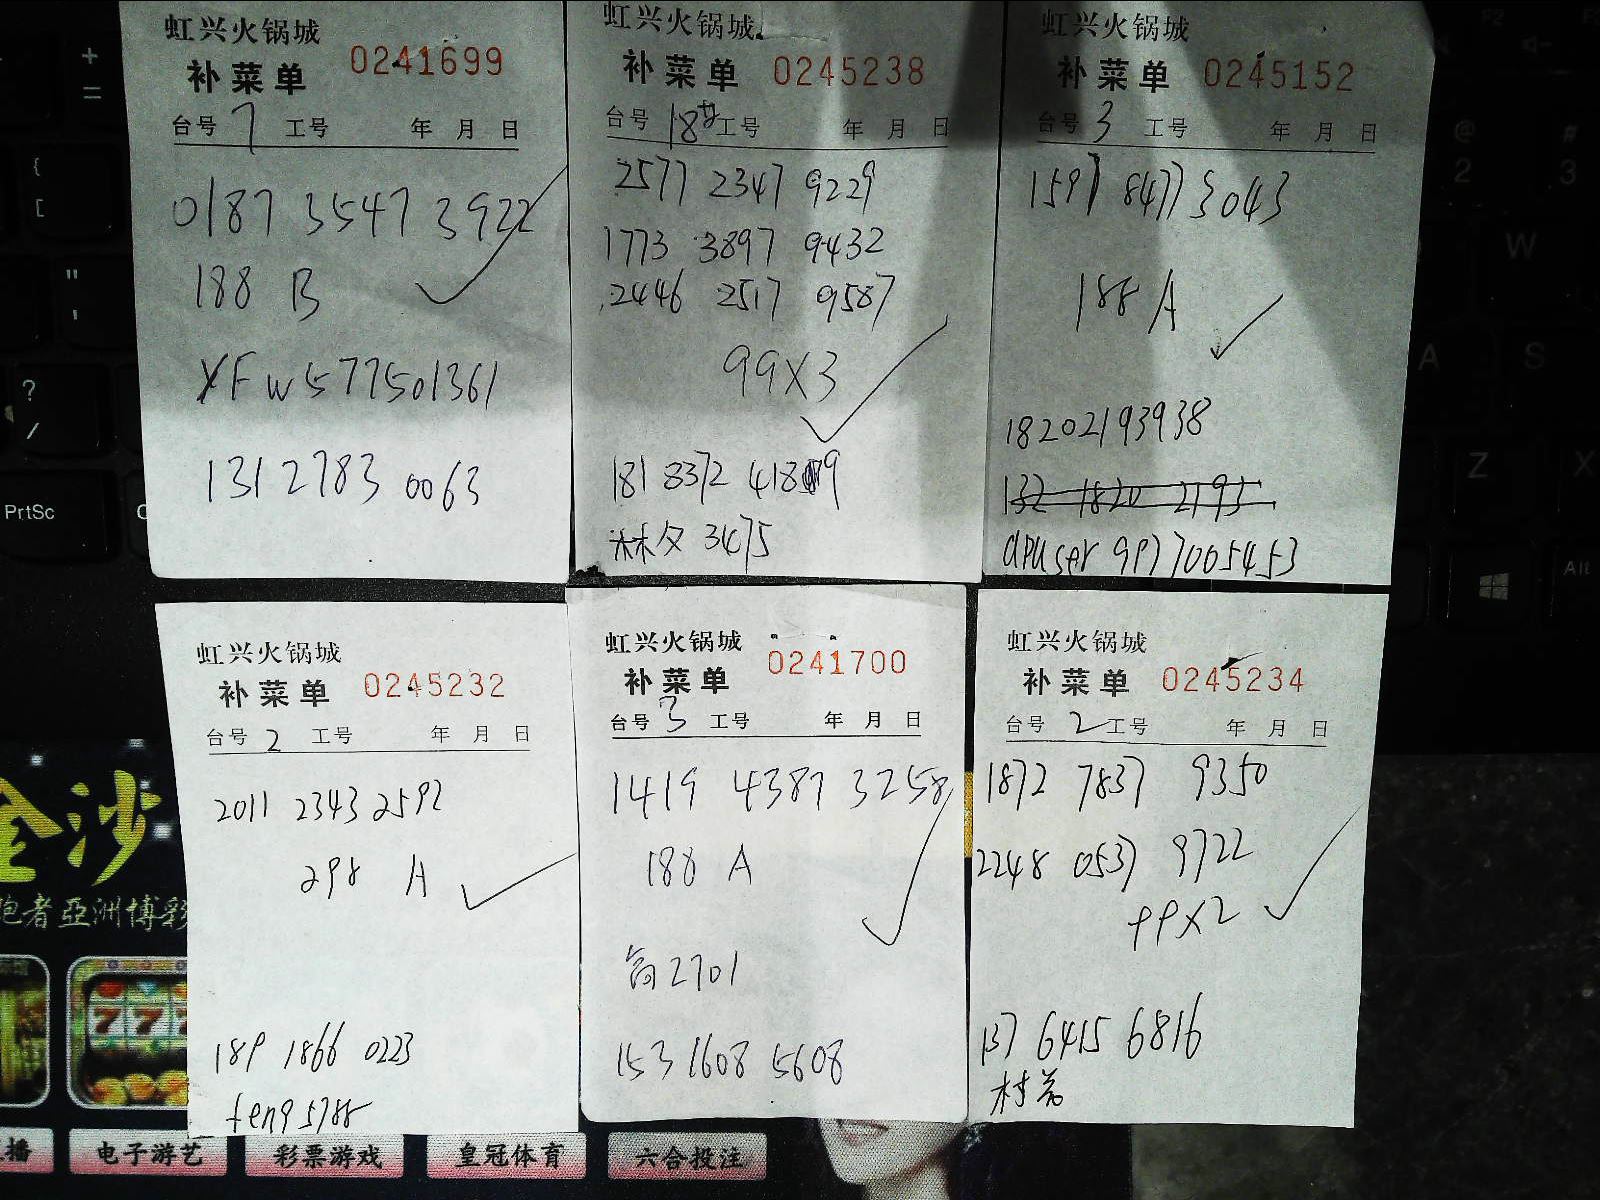 虹兴火锅城
补菜单 0241699
台号 7 工号 年 月 日
0187 3547 3922
188 B
XFW577501361
131 2783 0063
虹兴火锅城
补菜单 0245238
台号 18 工号 年 月 日
2577 2347 9229
1773 3897 9432
2446 2517 9587
99X3
181 8372 418 9
3475
虹兴火锅城
补菜单 0245152
台号 3 工号 年 月 日
1597 8477 3043
188 A
18202193938
132 1820 2193
dpuser 9977005453
虹兴火锅城
补菜单 0245232
台号 2 工号 年 月 日
2011 2343 2592
298 A
189 1866 0223
teng5788
虹兴火锅城
补菜单 0241700
台号 3 工号 年 月 日
1419 4387 3258
188 A
2701
153 1608 5608
虹兴火锅城
补菜单 0245234
台号 2 工号 年 月 日
1872 7837 9350
2248 0537 9722
99X2
137 6415 6816
金沙
跑者亞洲博彩
777
播 电子游艺 彩票游戏 皇冠体育 六合投注
+
=
{
[
"
'
?
/
PrtSc
@
2
#
3
W
A
S
Z
X
Alt